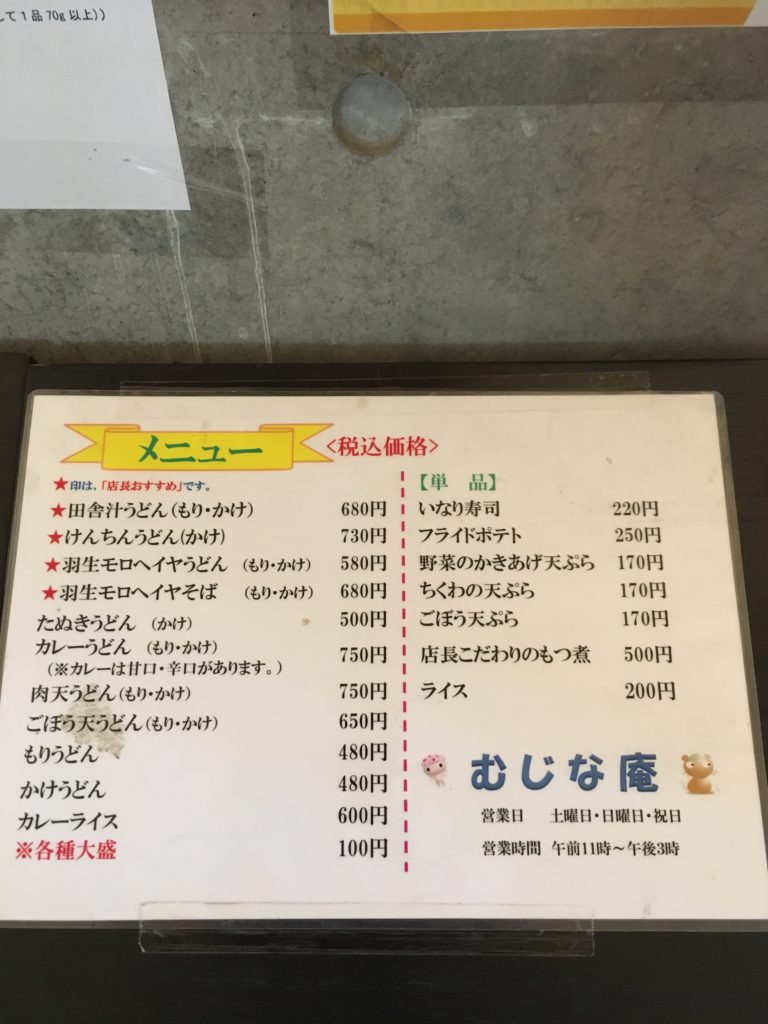 て1品70g以上))
メニュー <税込価格>
★印は、「店長おすすめ」です。
★田舎汁うどん(もり・かけ) 680円
★けんちんうどん(かけ) 730円
★羽生モロヘイヤうどん (もり・かけ) 580円
★羽生モロヘイヤそば (もり・かけ) 680円
たぬきうどん (かけ) 500円
カレーうどん (もり・かけ) 750円
(※カレーは甘口・辛口があります。)
肉天うどん(もり・かけ) 750円
ごぼう天うどん(もり・かけ) 650円
もりうどん 480円
かけうどん 480円
カレーライス 600円
※各種大盛 100円
【単 品】
いなり寿司 220円
フライドポテト 250円
野菜のかきあげ天ぷら 170円
ちくわの天ぷら 170円
ごぼう天ぷら 170円
店長こだわりのもつ煮 500円
ライス 200円
むじな庵
営業日 土曜日・日曜日・祝日
営業時間 午前11時～午後3時